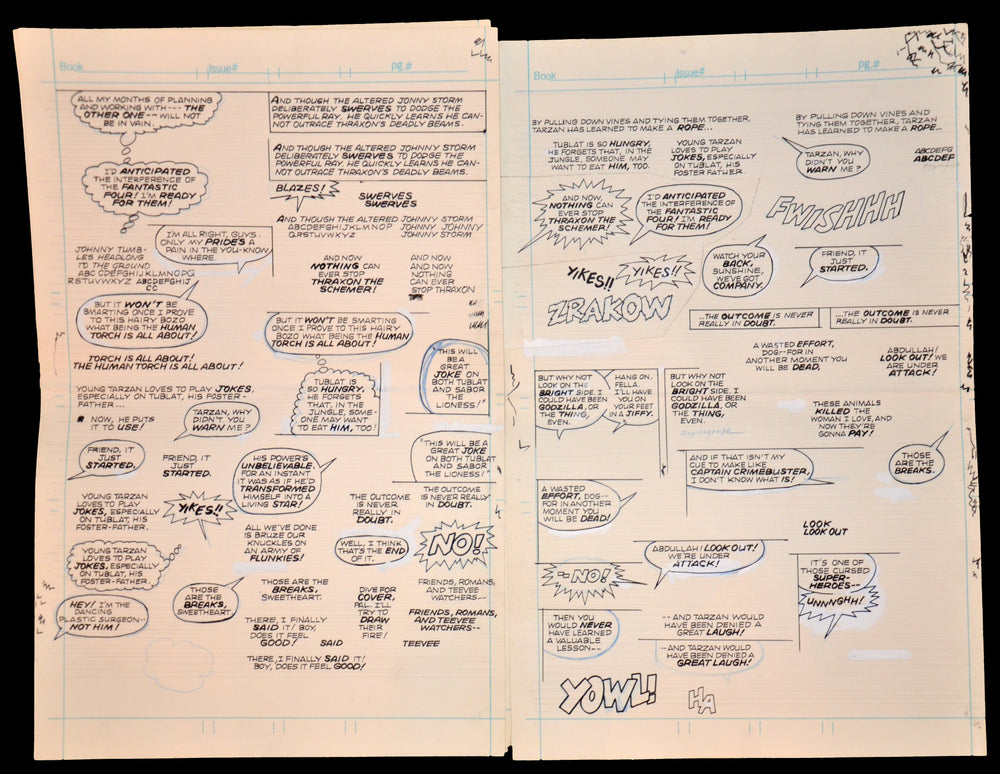 Book
Issue#
pg.#
ALL MY MONTHS OF PLANNING
AND WORKING WITH--- THE
OTHER ONE-- WILL NOT
BE IN VAIN.
AND THOUGH THE ALTERED JONNY STORM
DELIBERATELY SWERVES TO DODGE THE
POWERFUL RAY, HE QUICKLY LEARNS HE CAN-
NOT OUTRACE THRAXON'S DEADLY BEAMS.
AND THOUGH THE ALTERED JOHNNY STORM
DELIBERATELY SWERVES TO DODGE THE
POWERFUL RAY, HE QUICKLY LEARNS HE CAN-
NOT OUTRACE THRAXON'S DEADLY BEAMS.
I'D ANTICIPATED
THE INTERFERENCE OF
THE FANTASTIC
FOUR! I'M READY
FOR THEM!
BLAZES!
SWERVES
SWERVES
AND THOUGH THE ALTERED JOHNNY STORM
ABCDEFGHIJKLMNOP JOHNNY JOHNNY
QRSTUVWXYZ JOHNNY STORM
I'M ALL RIGHT, GUYS.
ONLY MY PRIDE'S A
PAIN IN THE YOU-KNOW
WHERE.
JOHNNY TUMB-
LES HEADLONG
TO THE GROUND
ABC CDEFGHIJKLMNOPQ
RSTUVWXYZ ABCDEFGHIJ
CC
AND NOW
NOTHING CAN
EVER STOP
THRAXON THE
SCHEMER!
AND NOW
AND NOW
NOTHING
CAN EVER
STOP THRAXON
BUT IT WON'T BE
SMARTING ONCE I PROVE
TO THIS HAIRY BOZO
WHAT BEING THE HUMAN
TORCH IS ALL ABOUT!
BUT IT WON'T BE SMARTING
ONCE I PROVE TO THIS HAIRY
BOZO WHAT BEING THE HUMAN
TORCH IS ALL ABOUT!
TORCH IS ALL ABOUT!
THE HUMAN TORCH IS ALL ABOUT!
"THIS WILL
BE A
GREAT
JOKE ON
BOTH TUBLAT
AND SABOR
THE
LIONESS!"
TUBLAT IS
SO HUNGRY,
HE FORGETS
THAT, IN THE
JUNGLE, SOME-
ONE MAY WANT
TO EAT HIM, TOO!
YOUNG TARZAN LOVES TO PLAY JOKES,
ESPECIALLY ON TUBLAT, HIS FOSTER-
FATHER...
NOW, HE PUTS
IT TO USE!
TARZAN, WHY
DIDN'T YOU
WARN ME?
FRIEND, IT
JUST
STARTED.
FRIEND, IT
JUST
STARTED.
HIS POWER'S
UNBELIEVABLE.
FOR AN INSTANT
IT WAS AS IF HE'D
TRANSFORMED
HIMSELF INTO A
LIVING STAR!
"THIS WILL BE A
GREAT JOKE
ON BOTH TUBLAT
AND SABOR
THE LIONESS!"
YOUNG TARZAN
LOVES TO PLAY
JOKES, ESPECIALLY
ON TUBLAT, HIS
FOSTER-FATHER.
YIKES!!
THE OUTCOME
IS NEVER
REALLY IN
DOUBT.
THE OUTCOME
IS NEVER REALLY
IN DOUBT.
ALL WE'VE DONE
IS BRUZE OUR
KNUCKLES ON
AN ARMY OF
FLUNKIES!
WELL, I THINK
THAT'S THE END
OF IT.
NO!
YOUNG TARZAN
LOVES TO PLAY
JOKES, ESPECIALLY
ON TUBLAT, HIS
FOSTER-FATHER.
THOSE
ARE THE
BREAKS,
SWEETHEART.
THOSE ARE THE
BREAKS,
SWEETHEART.
DIVE FOR
COVER,
PAL. I'LL
TRY TO
DRAW
THEIR
FIRE!
FRIENDS, ROMANS,
AND TEEVEE
WATCHERS--
HEY! I'M THE
DANCING
PLASTIC SURGEON--
NOT HIM!
THERE, I FINALLY
SAID IT! BOY,
DOES IT FEEL
GOOD! SAID
FRIENDS, ROMANS,
AND TEEVEE
WATCHERS--
TEEVEE
THERE, I FINALLY SAID IT!
BOY, DOES IT FEEL GOOD!
Book
Issue#
pg.#
BY PULLING DOWN VINES AND TYING THEM TOGETHER,
TARZAN HAS LEARNED TO MAKE A ROPE...
BY PULLING DOWN VINES AND
TYING THEM TOGETHER, TARZAN
HAS LEARNED TO MAKE A ROPE...
TUBLAT IS SO HUNGRY,
HE FORGETS THAT, IN THE
JUNGLE, SOMEONE MAY
WANT TO EAT HIM, TOO.
YOUNG TARZAN
LOVES TO PLAY
JOKES, ESPECIALLY
ON TUBLAT, HIS
FOSTER FATHER.
TARZAN, WHY
DIDN'T YOU
WARN ME?
ABCDEFG
ABCDEF
AND NOW,
NOTHING CAN
EVER STOP
THRAXON THE
SCHEMER!
I'D ANTICIPATED
THE INTERFERENCE OF
THE FANTASTIC
FOUR! I'M READY
FOR THEM!
FWISHHH
YIKES!!
YIKES!!
WATCH YOUR
BACK,
SUNSHINE,
WE'VE GOT
COMPANY.
FRIEND, IT
JUST
STARTED.
ZRAKOW
...THE OUTCOME IS NEVER
REALLY IN DOUBT.
...THE OUTCOME IS NEVER
REALLY IN DOUBT.
A WASTED EFFORT,
DOG--FOR IN
ANOTHER MOMENT YOU
WILL BE DEAD.
ABDULLAH!
LOOK OUT! WE
ARE UNDER
ATTACK!
BUT WHY NOT
LOOK ON THE
BRIGHT SIDE. I
COULD HAVE BEEN
GODZILLA, OR
THE THING,
EVEN.
HANG ON,
FELLA.
I'LL HAVE
YOU ON
YOUR FEET
IN A JIFFY.
BUT WHY NOT
LOOK ON THE
BRIGHT SIDE. I
COULD HAVE BEEN
GODZILLA, OR
THE THING,
EVEN.
THESE ANIMALS
KILLED THE
WOMAN I LOVE, AND
NOW THEY'RE
GONNA PAY!
AND IF THAT ISN'T MY
CUE TO MAKE LIKE
CAPTAIN CRIMEBUSTER,
I DON'T KNOW WHAT IS!
THOSE
ARE THE
BREAKS.
A WASTED
EFFORT, DOG--
FOR IN ANOTHER
MOMENT YOU
WILL BE DEAD!
LOOK
LOOK OUT
ABDULLAH! LOOK OUT!
WE'RE UNDER
ATTACK!
--NO!
IT'S ONE OF
THOSE CURSED
SUPER-
HEROES--
UNNNGHH!
THEN YOU
WOULD NEVER
HAVE LEARNED
A VALUABLE
LESSON--
--AND TARZAN WOULD
HAVE BEEN DENIED A
GREAT LAUGH!
--AND TARZAN WOULD
HAVE BEEN DENIED A
GREAT LAUGH!
YOWL!
HA